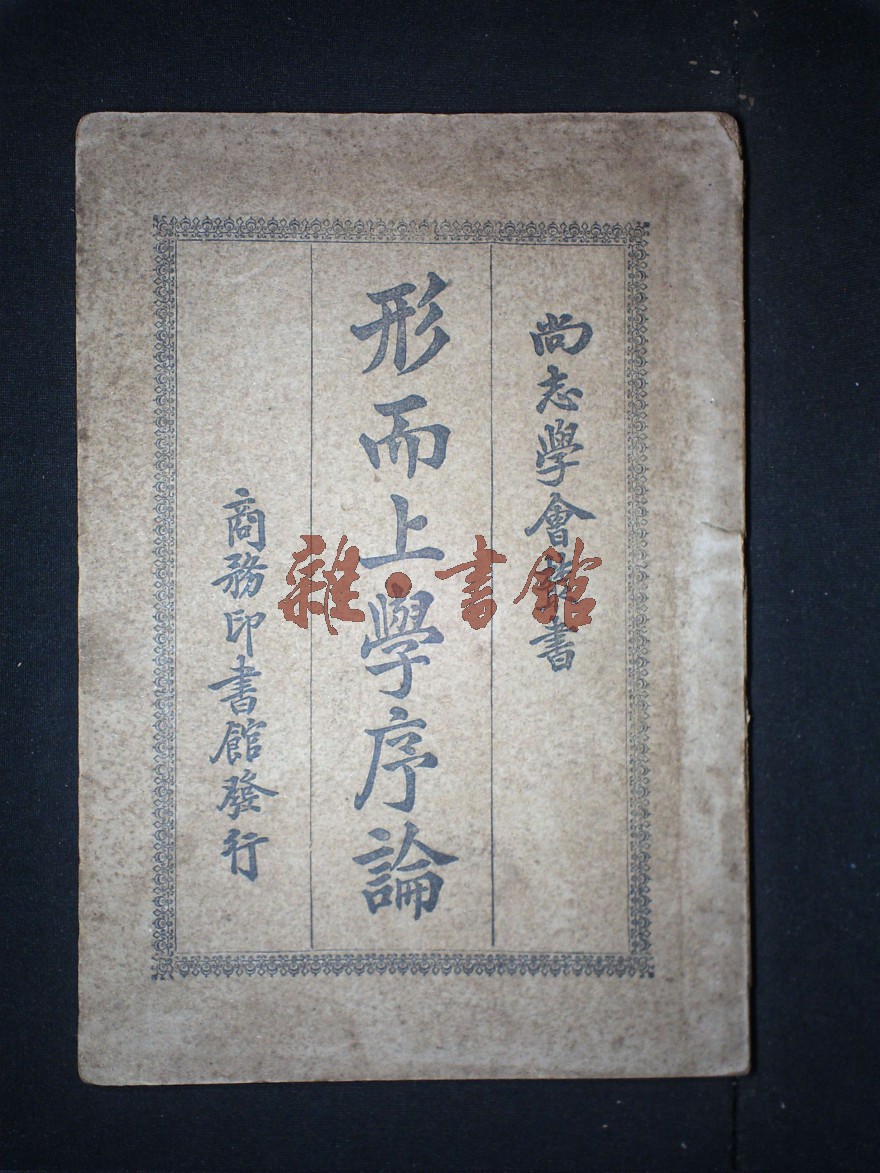 尚志學會叢書
形而上學序論
商務印書館發行
雜·書館